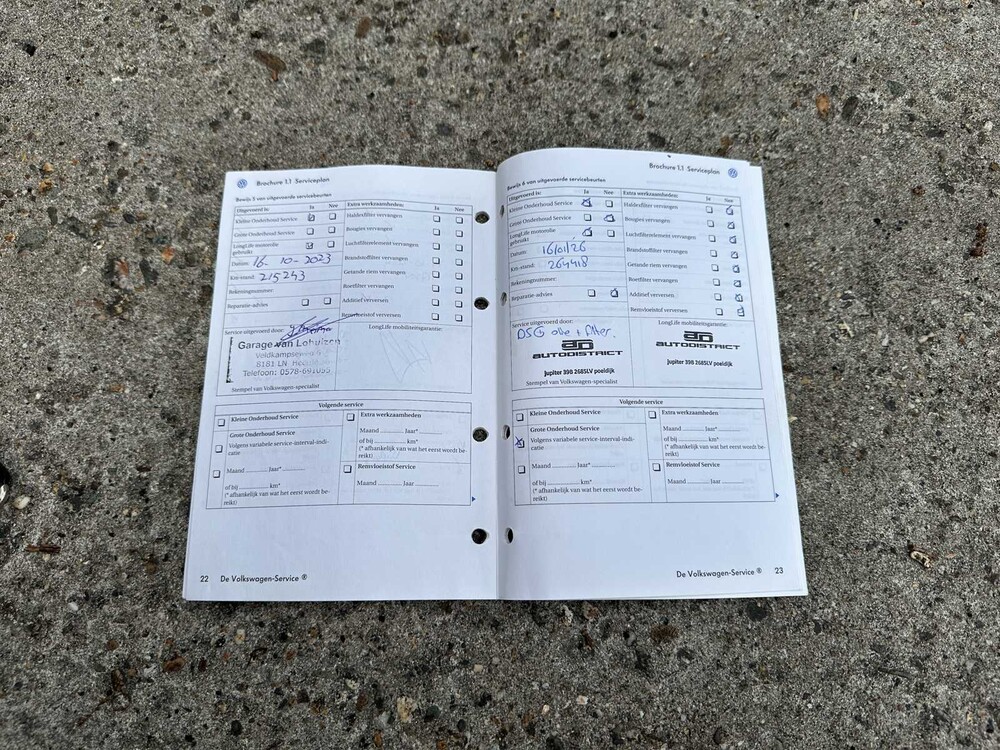 Brochure 1.1 Serviceplan
Bewijs 5 van uitgevoerde servicebeurten
Uitgevoerd is: Ja Nee
Kleine Onderhoud Service
Grote Onderhoud Service
LongLife motorolie
gebruikt
Datum: 16-10-2023
Km-stand: 215243
Rekeningnummer
Reparatie-advies
Extra werkzaamheden: Ja Nee
Haldexfilter vervangen
Bougies vervangen
Luchtfilterelement vervangen
Brandstoffilter vervangen
Getande riem vervangen
Roetfilter vervangen
Additief verversen
Remvloeistof verversen
Service uitgevoerd door:
Garage van Lohuizen
8181 LN
Telefoon: 0578-691055
Stempel van Volkswagen-specialist
LongLife mobiliteitsgarantie:
Volgende service
Kleine Onderhoud Service
Grote Onderhoud Service
Volgens variabele service-interval-indi-
catie
Maand ............ Jaar*............
of bij ............ km*
(* afhankelijk van wat het eerst wordt be-
reikt)
Extra werkzaamheden
Maand ............ Jaar*............
of bij ............ km*
(* afhankelijk van wat het eerst wordt be-
reikt)
Remvloeistof Service
Maand ............ Jaar ............
22 De Volkswagen-Service ®
Brochure 1.1 Serviceplan
Bewijs 6 van uitgevoerde servicebeurten
Uitgevoerd is: Ja Nee
Kleine Onderhoud Service
Grote Onderhoud Service
LongLife motorolie
gebruikt
Datum: 16/01/26
Km-stand: 264418
Rekeningnummer:
Reparatie-advies
Extra werkzaamheden: Ja Nee
Haldexfilter vervangen
Bougies vervangen
Luchtfilterelement vervangen
Brandstoffilter vervangen
Getande riem vervangen
Roetfilter vervangen
Additief verversen
Remvloeistof verversen
Service uitgevoerd door:
DSG olie + filter.
AUTODISTRICT
Jupiter 396 2685LV poeldijk
Stempel van Volkswagen-specialist
LongLife mobiliteitsgarantie:
AUTODISTRICT
Jupiter 396 2685LV poeldijk
Volgende service
Kleine Onderhoud Service
Grote Onderhoud Service
Volgens variabele service-interval-indi-
catie
Maand ............ Jaar*............
of bij ............ km*
(* afhankelijk van wat het eerst wordt be-
reikt)
Extra werkzaamheden
Maand ............ Jaar*............
of bij ............ km*
(* afhankelijk van wat het eerst wordt be-
reikt)
Remvloeistof Service
Maand ............ Jaar ............
De Volkswagen-Service ® 23